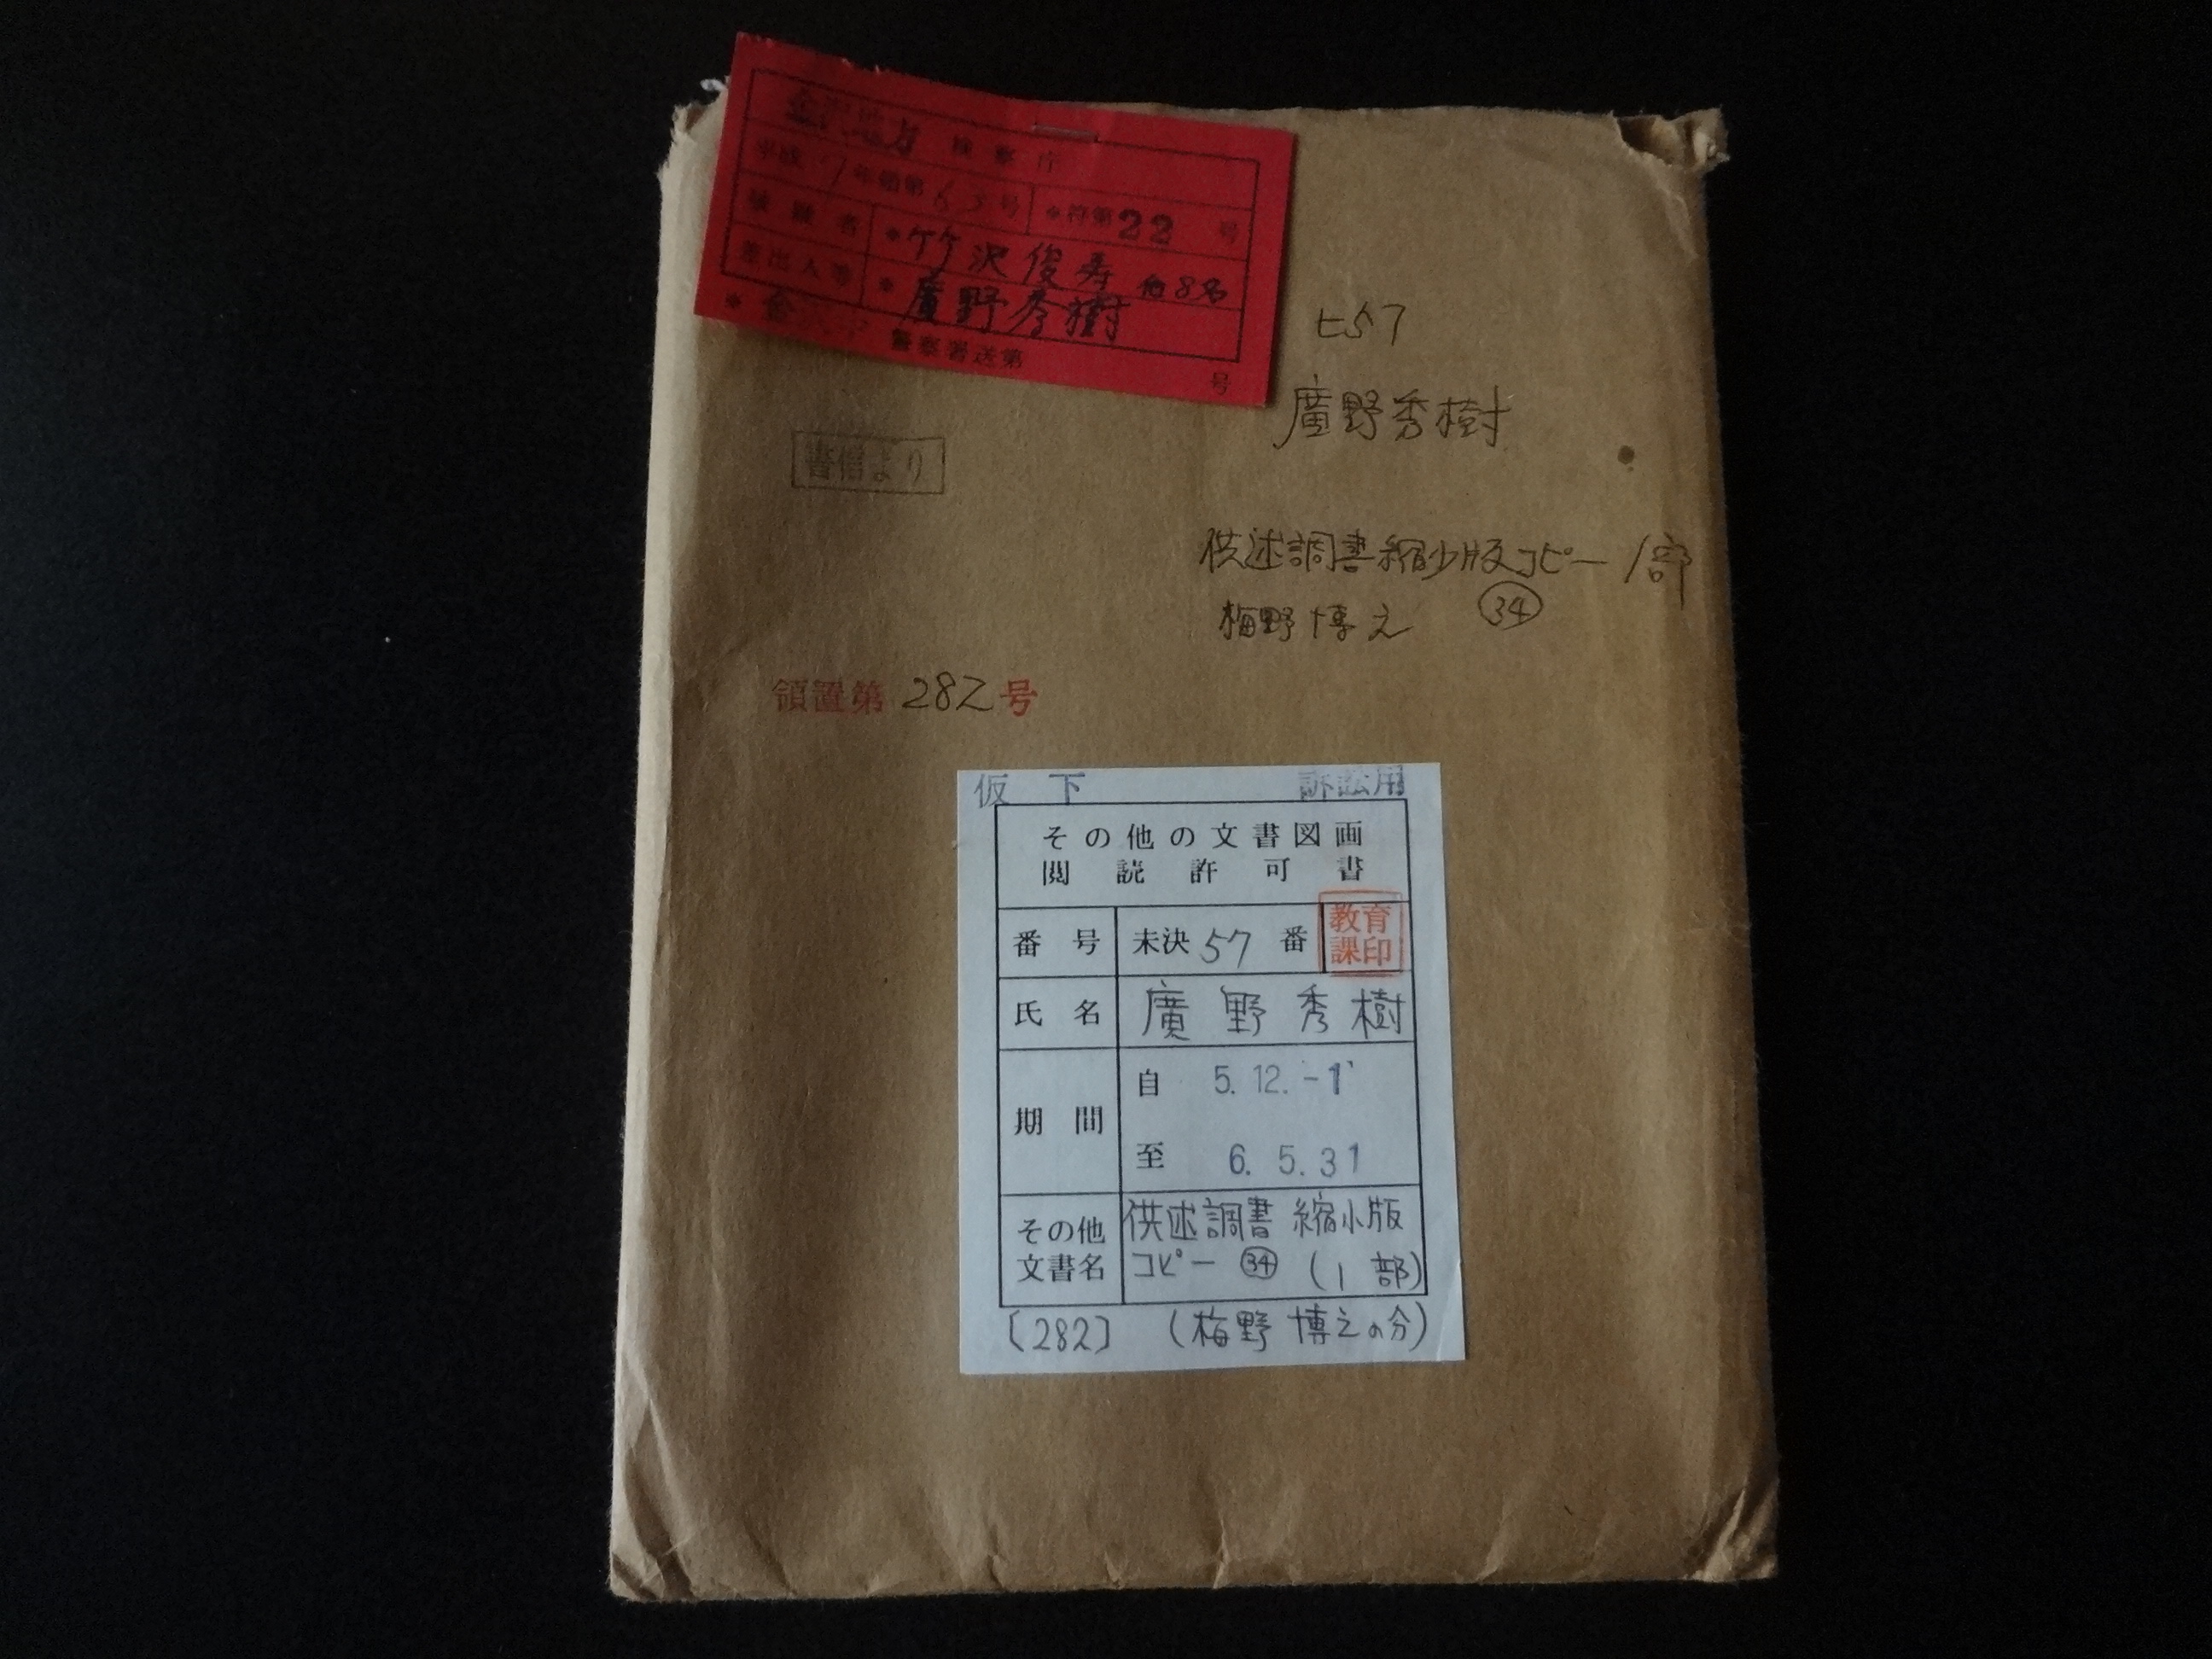 金沢地方 検察庁
平成 7年領第63号 *符第22号
被疑者 *竹沢俊寿 他8名
差出人等 *廣野秀樹
* 警察署送第 号
ヒ57
廣野秀樹
書信より
供述調書縮少版コピー 1部
梅野博之 ㉞
領置第 282 号
仮 下 訴訟用
その他の文書図画
閲読許可書
番号 未決 57 番 教育
課印
氏名 廣野秀樹
期間 自 5.12.-1
至 6.5.31
その他
文書名 供述調書 縮小版
コピー ㉞ (1部)
〔282〕 (梅野博之の分)